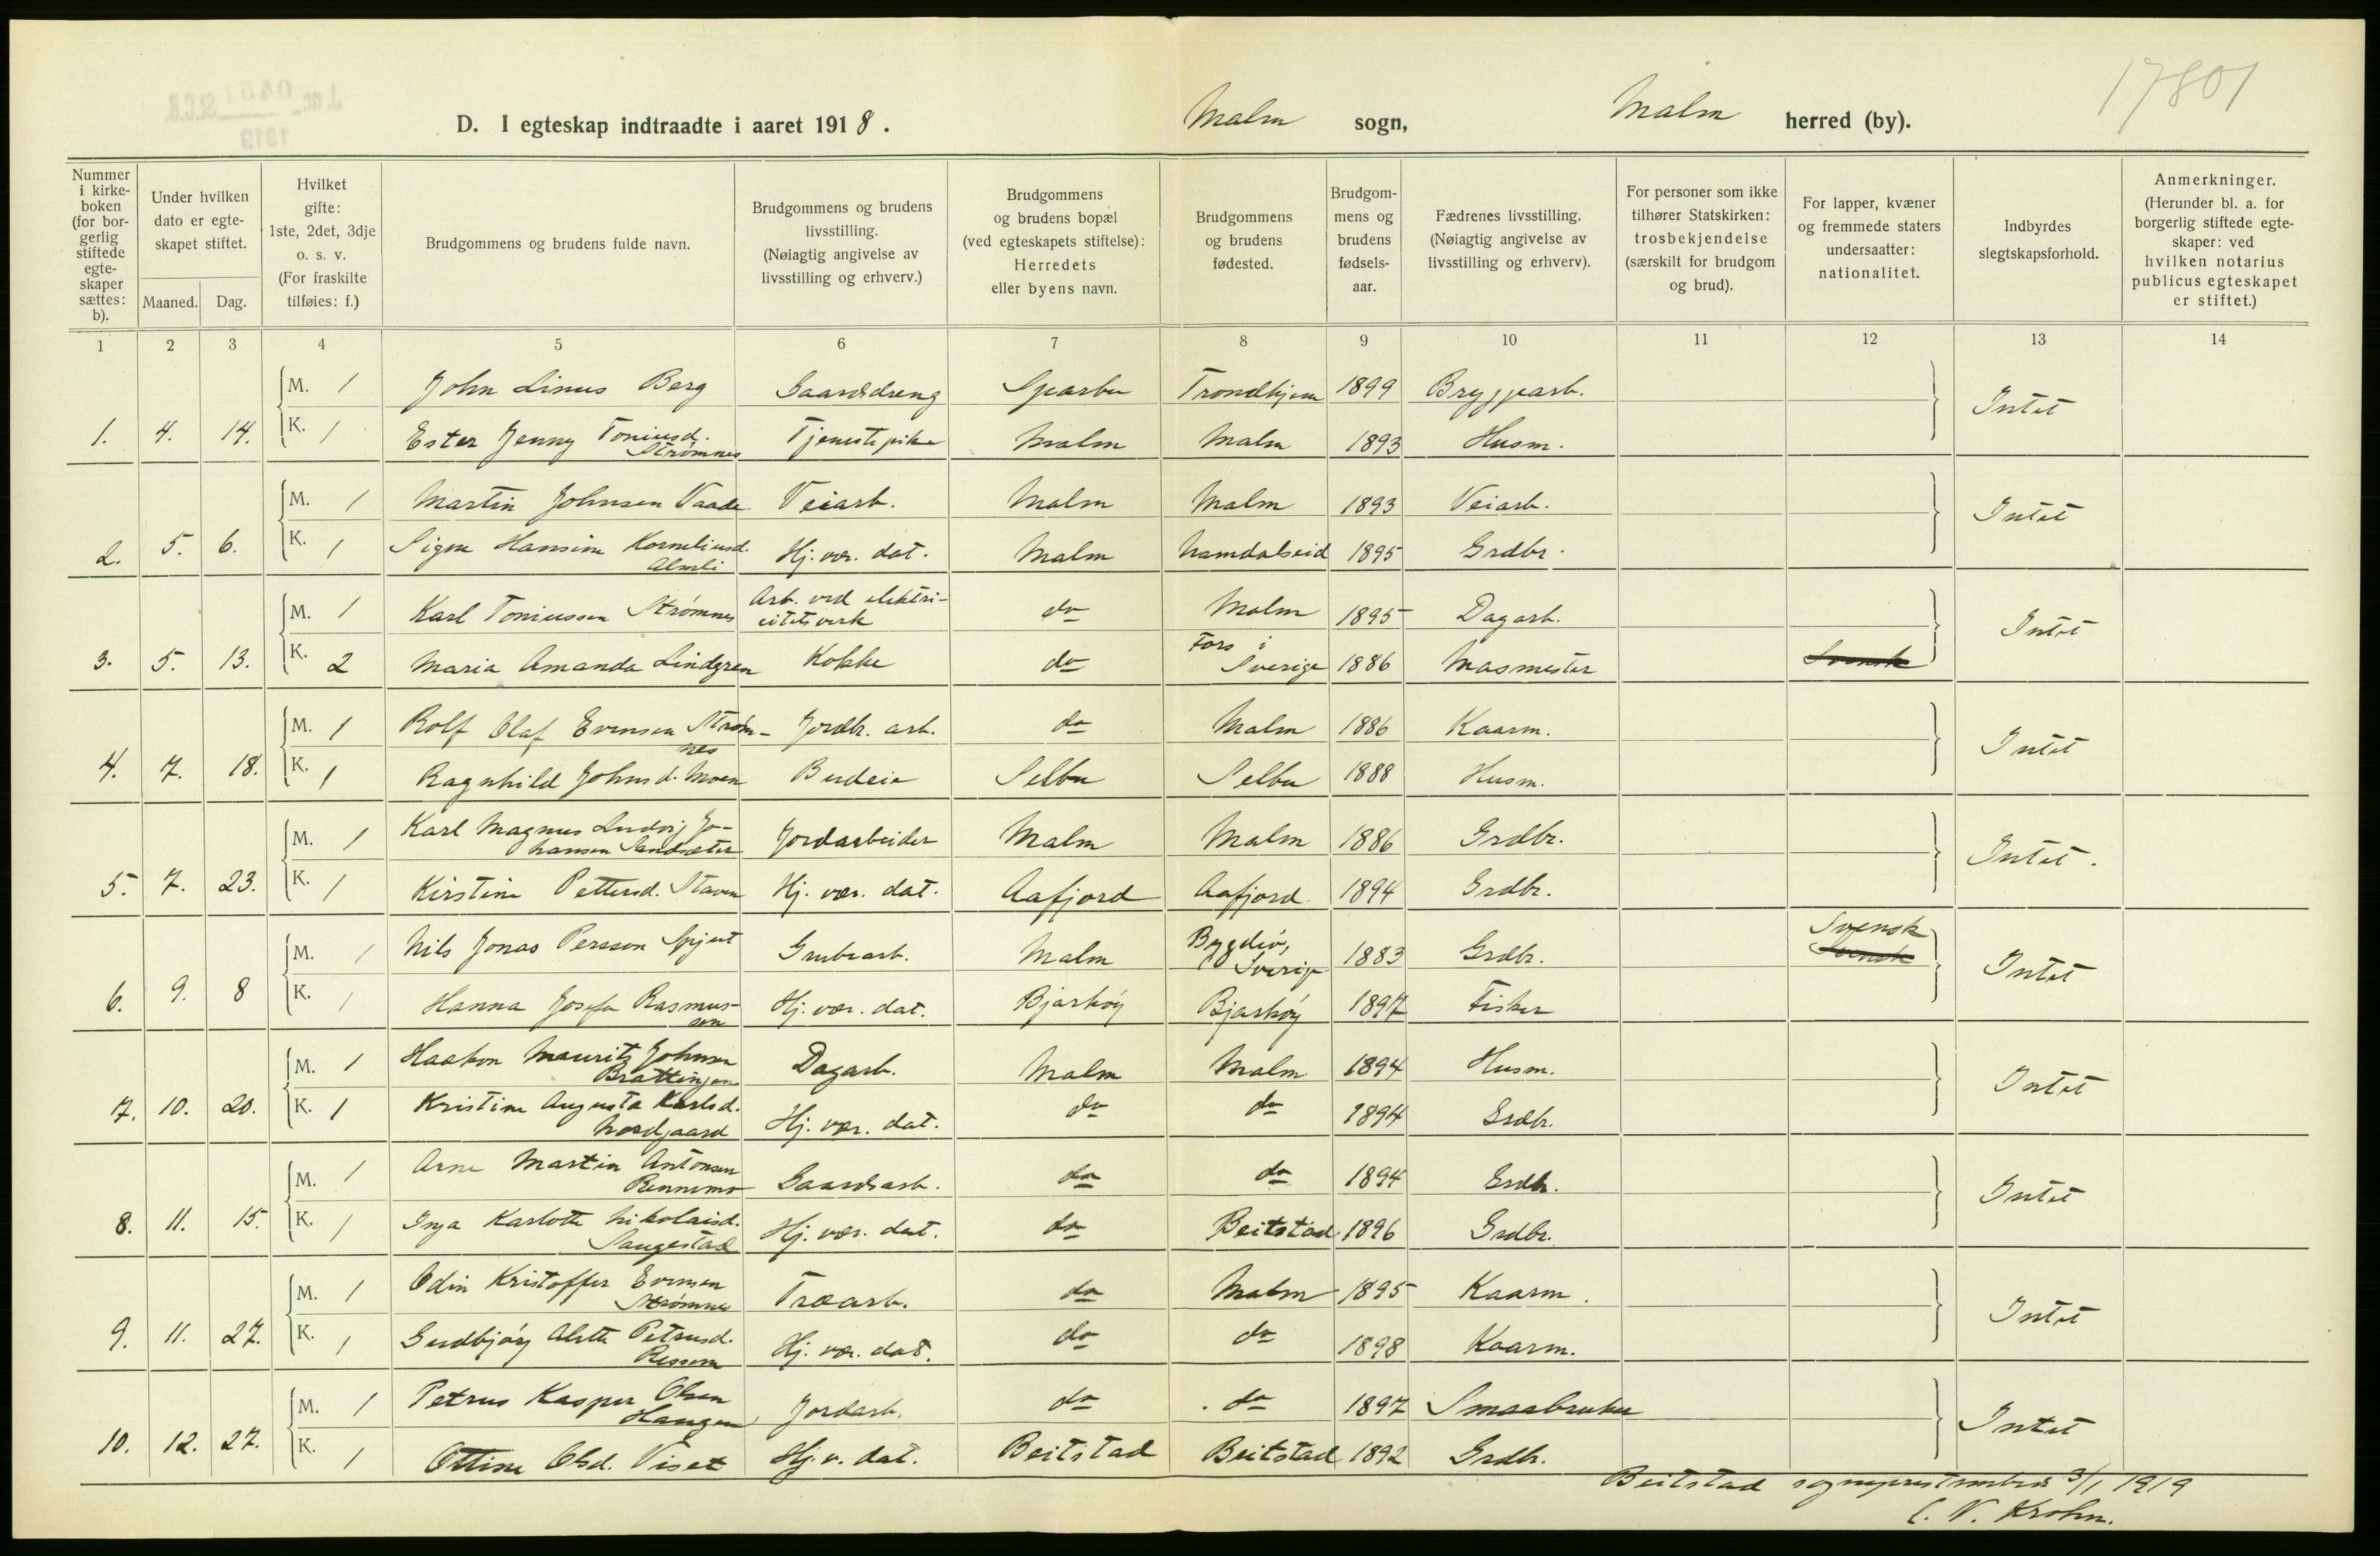 17801
D. I egteskap indtraadte i aaret 1918. Malm sogn, Malm herred (by).
Nummer i kirkeboken (for borgerlig stiftede egteskaper sættes: b).
Under hvilken dato er egteskapet stiftet.
Maaned. Dag.
Hvilket gifte: 1ste, 2det, 3dje o. s. v. (For fraskilte tilføies: f.)
Brudgommens og brudens fulde navn.
Brudgommens og brudens livsstilling. (Nøiagtig angivelse av livsstilling og erhverv.)
Brudgommens og brudens bopæl (ved egteskapets stiftelse): Herredets eller byens navn.
Brudgommens og brudens fødested.
Brudgommens og brudens fødselsaar.
Fædrenes livsstilling. (Nøiagtig angivelse av livsstilling og erhverv).
For personer som ikke tilhører Statskirken: trosbekjendelse (særskilt for brudgom og brud).
For lapper, kvæner og fremmede staters undersaatter: nationalitet.
Indbyrdes slegtskapsforhold.
Anmerkninger. (Herunder bl. a. for borgerlig stiftede egteskaper: ved hvilken notarius publicus egteskapet er stiftet.)
1 2 3 4 5 6 7 8 9 10 11 12 13 14
M. 1 John Linus Berg Gaardsdreng Sparbu Trondhjem 1899 Bryggearb. Intet
1. 4. 14. K. 1 Ester Jenny Toniusd. Strømnes Tjenestepike Malm Malm 1893 Husm.
M. 1 Martin Johnsen Vaade Veiarb. Malm Malm 1893 Veiarb. Intet
2. 5. 6. K. 1 Signe Hansine Korneliusd. Almli Hj. vær. dat. Malm Namdalseid 1895 Grdbr.
M. 1 Karl Toniussen Strømnes Arb. ved elektricitetsverk do Malm 1895 Dagarb. Intet
3. 5. 13. K. 2 Maria Amanda Lindgren Kokke do Fors i Sverige 1886 Masmester Svensk
M. 1 Rolf Olaf Evensen Strømnes Jordbr. arb. do Malm 1886 Kaarm. Intet
4. 7. 18. K. 1 Ragnhild Johnsd. Moen Budeie Selbu Selbu 1888 Husm.
M. 1 Karl Magnus Ludvig Johansen Sandsæter Jordarbeider Malm Malm 1886 Grdbr. Intet.
5. 7. 23. K. 1 Kirstine Pettersd. Staven Hj. vær. dat. Aafjord Aafjord 1894 Grdbr.
M. 1 Nils Jonas Persson Spjut Grubearb. Malm Bygdeå, Sverige 1883 Grdbr. Svensk Svensk Intet
6. 9. 8 K. 1 Hanna Josefa Rasmussen Hj. vær. dat. Bjarkøy Bjarkøy 1897 Fisker
M. 1 Haakon Maurits Johnsen Brattingen Dagarb. Malm Malm 1894 Husm. Intet
7. 10. 20. K. 1 Kristine Augusta Karlsd. Nordgaard Hj. vær. dat. do do 1894 Grdbr.
M. 1 Arne Martin Antonsen Rennemo Gaardsarb. do do 1894 Grdb. Intet
8. 11. 15. K. 1 Inga Karlotte Nikolaisd. Saugestad Hj. vær. dat. do Beitstad 1896 Grdbr.
M. 1 Odin Kristoffer Evensen Strømnes Træarb. do Malm 1895 Kaarm. Intet
9. 11. 27. K. 1 Gudbjørg Alette Petrusd. Ressem Hj. vær. dat. do do 1898 Kaarm.
M. 1 Petrus Kasper Olsen Haugen Jordarb. do do 1897 Smaabruker Intet
10. 12. 27. K. 1 Ottine Olsd. Viset Hj. v. dat. Beitstad Beitstad 1892 Grdb.
Beitstad sogneprestembede 3/1 1919
C. V. Krohn.